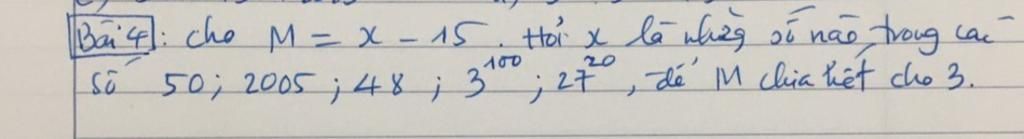 Bài 4: cho M = x - 15. Hỏi x là những số nào trong các
số 50; 2005; 48; 3^100; 27^20, để M chia hết cho 3.